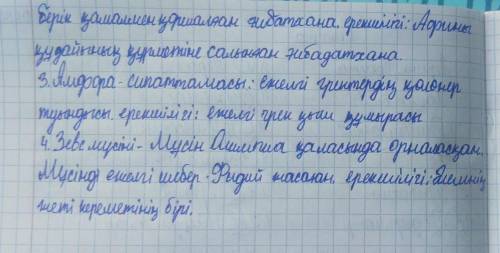 Берік қамалмен қоршалған ғибатхана, ерекшелігі: Афины
құдайының құрметіне салынған ғибадатхана.
3. Амфора - сипаттамасы: ежелгі гректердің қолөнер
туындысы, ерекшілігі: ежелгі грек қыш құмырасы
4. Зевс мүсіні - Мүсін Олимпия қаласында орналасқан.
Мүсінді ежелгі шебер - Фидий жасаған, ерекшілігі: Әлемнің
жеті кереметінің бірі.